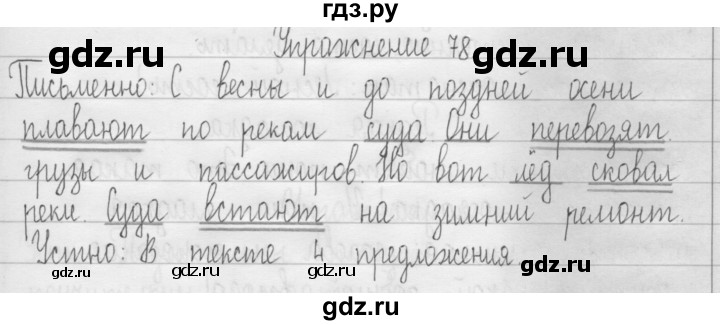 гдз.ру
gdz.ru gdz.ru
Упражнение 78
Письменно: С весны и до поздней осени
gdz.ru gdz.ru
плавают по рекам суда. Они перевозят
грузы и пассажиров. Но вот лёд сковал
gdz.ru gdz.ru
реки. Суда встают на зимний ремонт.
Устно: В тексте 4 предложения
gdz.ru gdz.ru
gdz.ru